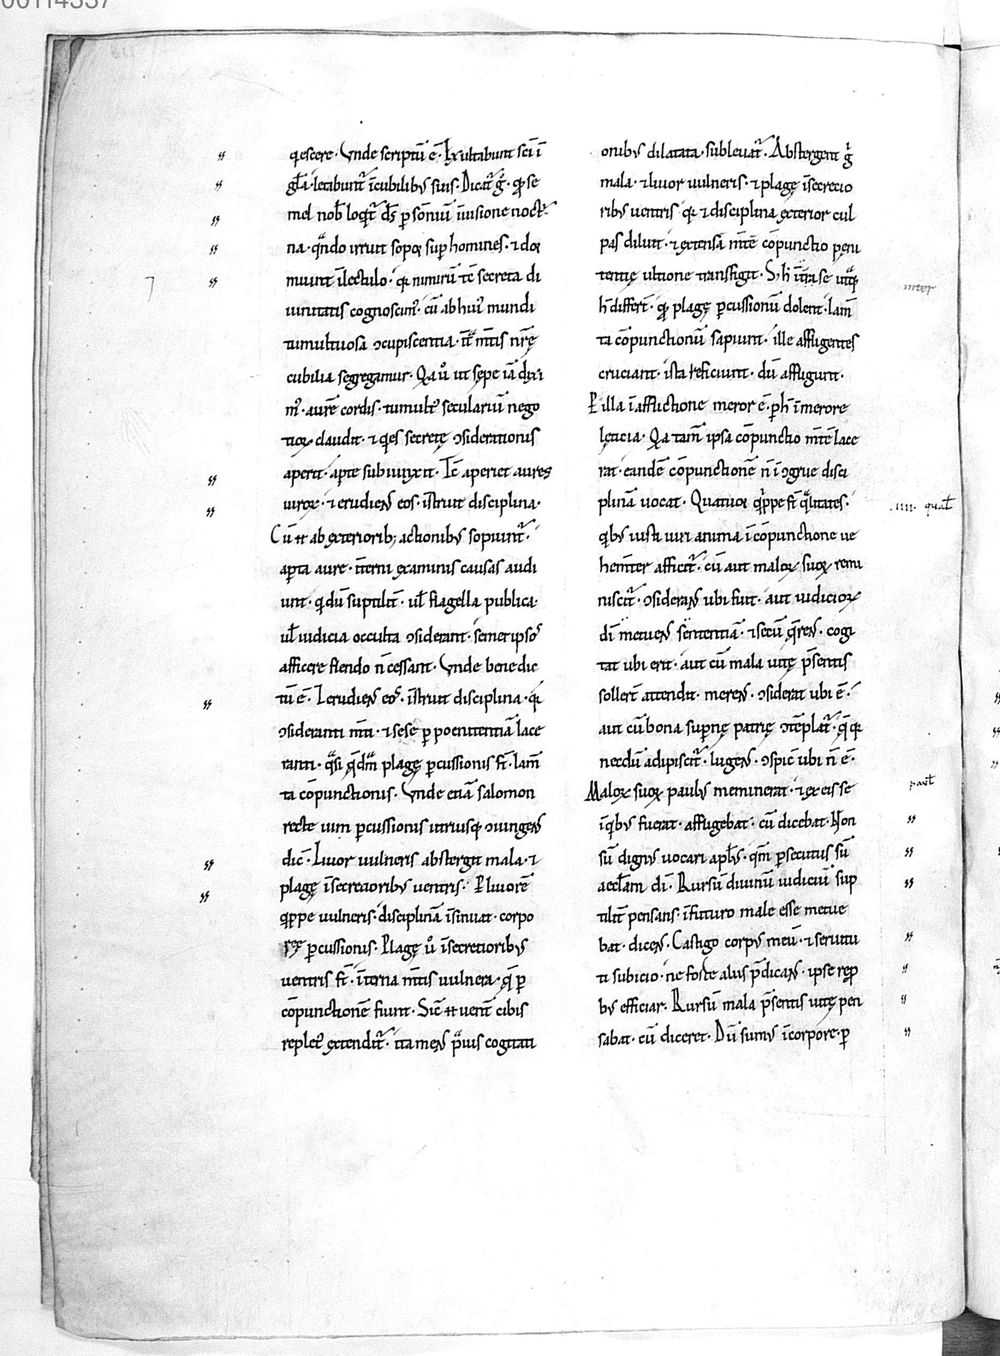 00114337
qescere· Vnde scriptū ē· Exultabunt sc̄i ī
gl̄a· letabunt᷑ ī cubilibꝰ suis· Dicat᷑ g̊· qꝛ se
mel nob̄ loqt᷑ ds̄ p̱ sōniū ī uisione noct᷑
na· qn̄do irruit sopor sup̱ homines· ⁊ dor
miunt ī lectulo· qꝛ nimirū tc̄ secreta di
uinitatis cognoscim᷒· cū ab hui᷒ mundi
tumultuosa ↄcupiscentia· īt̄ mt̄is nr̄ę
cubilia segregamur· Qa ů ut sępe iā dixi
m᷒· aurē cordis· tumult᷒ seculariū nego
tioꝝ claudit· ⁊ qes secretę ↄsiderationis
aperit· apte subiunxit· Tc̄ aperiet aures
uiroꝝ· ⁊ erudiens eos· īstruit disciplina·
Cū ⁊t ab exteriorib; actionibꝰ sopiunt᷑·
apta aure· īterni examinis causas audi
unt· q dū suptilit᷑· ul̄ flagella publica·
ul̄ iudicia occulta ↄsiderant· semetipsos
afficere flendo n̄ cessant· Vnde bene dic
tū ē· ⁊ erudiens eos· īstruit disciplina· qꝛ
ↄsideranti mn̄ti· ⁊ sese p̱ poenitentiā lace
ranti· qͣsi q̄dā plagę p̱cussionis st̄· lam̄
ta cōpunctionis· Vnde etiā salomon
recte uim p̱cussionis utriusq; ↄiungens
dic̄· Liuor uulneris abstergit mala· ⁊
plagę ī secretioribꝰ uentris· P liuorē
qͥppe uulneris· disciplinā īsinuat· corpo
ree p̱cussionis· Plagę ů ī secretioribꝰ
uentris st̄· īterna mt̄is uulnera· q̄ p̱
cōpunctionē fiunt· Sic̄ ⁊t uent᷑ cibis
replet᷒ extendit᷑· ita mens p̄uis cogitati
onibꝰ dilatata· subleuat᷑· Abstergent g̊
mala· ⁊ liuor uulneris· ⁊ plagę ī secretio
ribꝰ uentris· qꝛ ⁊ disciplina exterior cul
pas diluit· ⁊ extensā mt̄e cōpunctio peni
tentię ultione transfigit· S; h̄ īt̄ se utq̄;
inter
h̄ differt᷑· qꝛ plagę p̱cussionū dolent· lam̄
ta cōpunctionū sapiunt· ille affligentes
cruciant· ista reficiunt· dū affligunt·
P illa ī afflictione meror ē· p̱ h̄ ī merore
lęticia· Qa tam̄ ipsa cōpunctio mt̄ē lace
rat· eandē cōpunctionē n̄ īↄgrue disci
plinā uocat· Quatuor qͥppe st̄ qͣlitates·
·iiii· qual̄
qͥbꝰ iusti uiri anima ī cōpunctione ue
hem̄ter afficit᷑· cū aut maloꝝ suoꝝ remi
niscit᷑· ↄsiderans ubi fuit· aut iudicioꝝ
di metuens sententiā· ⁊ secū q̄rens· cogi
tat ubi erit· aut cū mala uitę p̄sentis
sollert᷑ attendit· merens· ↄsiderat ubi ē·
aut cū bona sup̱nę patrię ↄtēplat᷑· q̄ qꝛ
necdū adipiscit᷑· lugens· ↄspic̄ ubi n̄ ē·
Maloꝝ suoꝝ paulus meminerat· ⁊ ex eis se
paul̄
ī qͥbꝰ fuerat· affligebat· cū dicebat· Non
sū dignus uocari apl̄s· qm̄ p̱secutus sū
aecl̄am di· Rursū diuinū iudiciū sup
tilit᷑ pensans· ī futuro male esse metue
bat· dicens· Castigo corpus meū· ⁊ seruitu
ti subicio· ne forte aliis p̄dicans· ipse rep̱
bꝰ efficiar· Rursū mala p̄sentis uitę pen
sabat· cū diceret· Dū sumus ī corpore· p̱